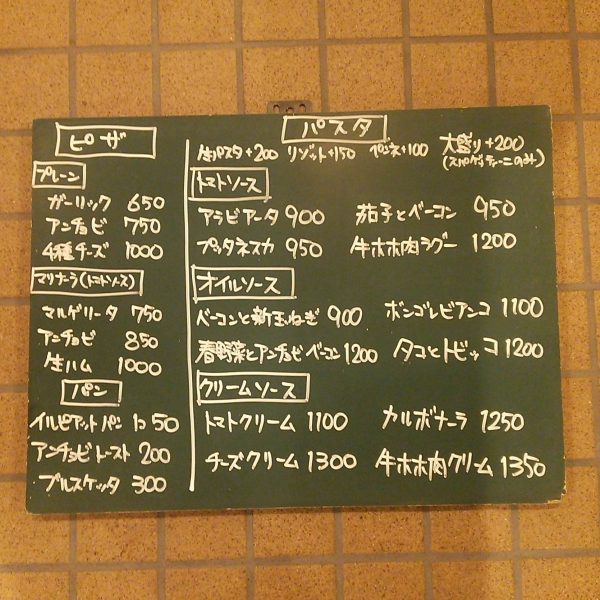 ピザ
プレーン
ガーリック 650
アンチョビ 750
4種チーズ 1000
マリナーラ(トマトソース)
マルゲリータ 750
アンチョビ 850
生ハム 1000
パン
イルピアットパン 1コ 50
アンチョビトースト 200
ブルスケッタ 300
パスタ
生パスタ+200 リゾット+150 ペンネ+100 大盛り+200
(スパゲッティーニのみ)
トマトソース
アラビアータ 900 茄子とベーコン 950
プッタネスカ 950 牛ホホ肉ラグー 1200
オイルソース
ベーコンと新玉ねぎ 900 ボンゴレビアンコ 1100
春野菜とアンチョビベーコン 1200 タコとトビッコ 1200
クリームソース
トマトクリーム 1100 カルボナーラ 1250
チーズクリーム 1300 牛ホホ肉クリーム 1350